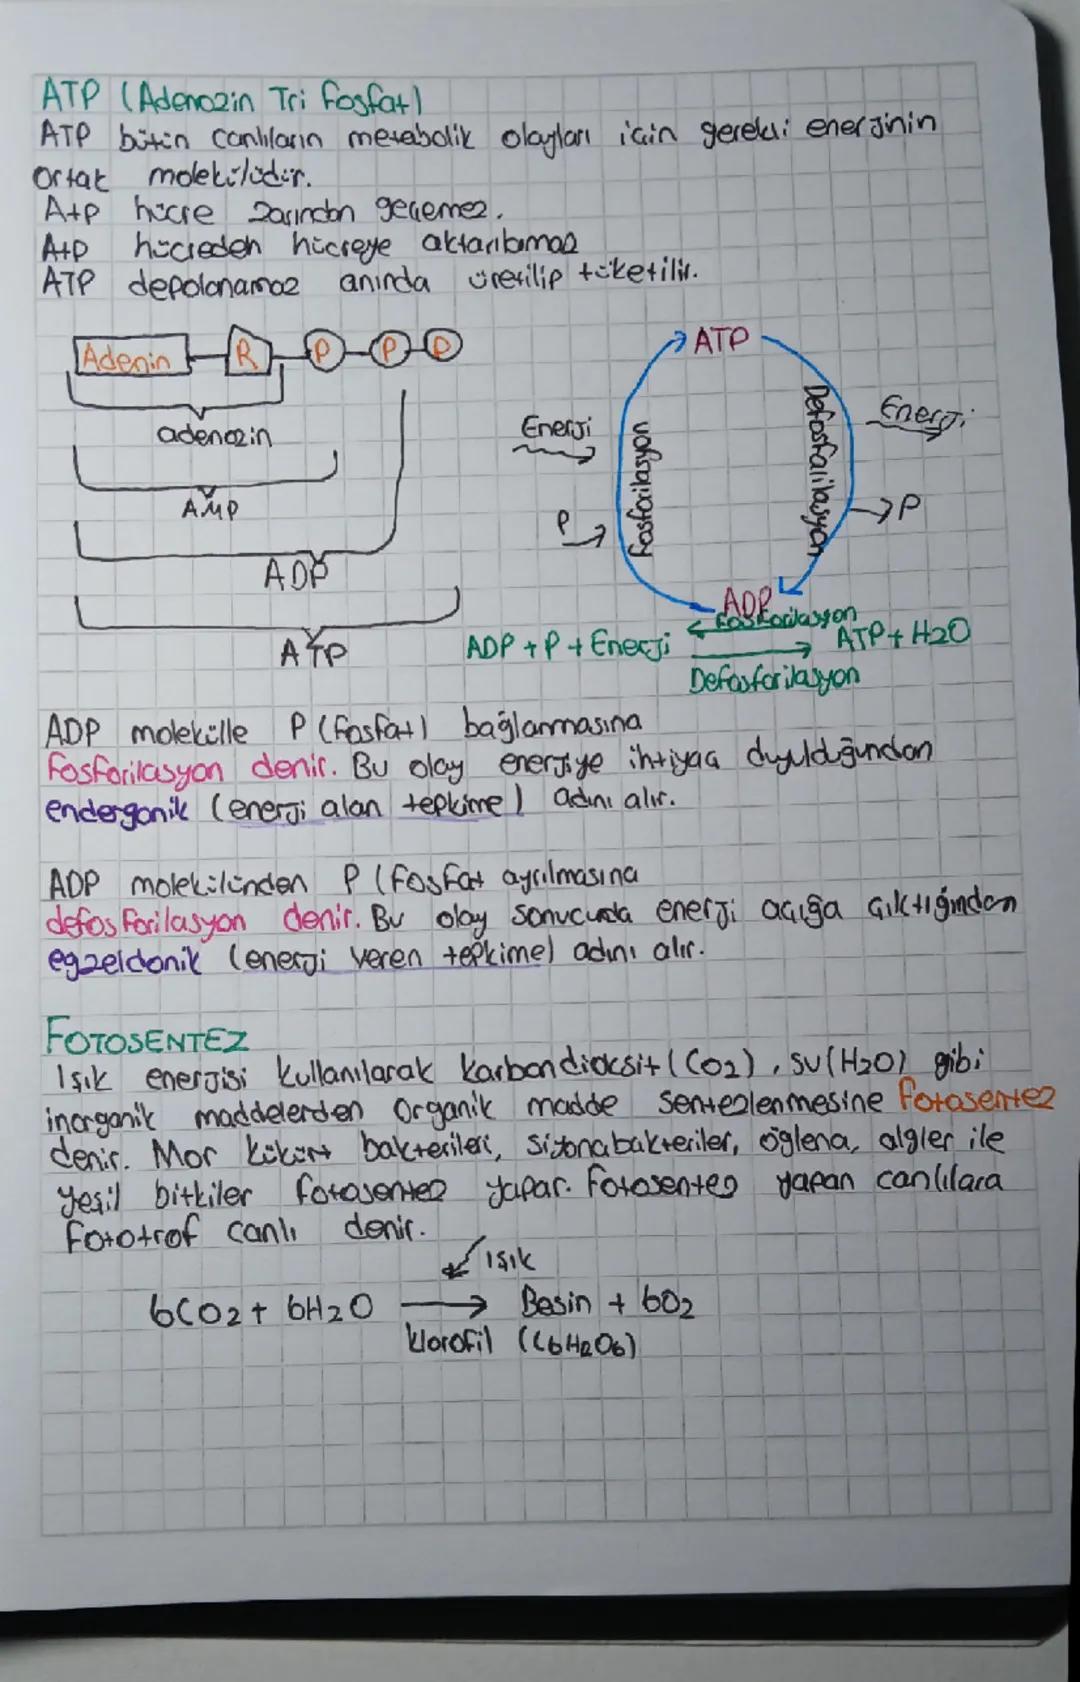 ATP (Adenozin Tri fosfat)
ATP bütün canlıların metebolik olayları için gerekli enerjinin
Ortak molekülüdür.
Atp hücre zarından geçemez.
Atp hücreden hücreye aktarılamaz
ATP depolanamaz anında üretilip tüketilir.
Adenin R P P P
adenozin
AMP
ADP
ATP
ATP
Enerji
P
fosforilasyon
Defosforilasyon
Enerji
P
ADP
ADP + P + Enerji
fosforilasyon
Defosforilasyon
ATP + H2O
ADP molekülle P (fosfat) bağlanmasına
fosforilasyon denir. Bu olay enerjiye ihtiyaç duyulduğundan
endergonik (enerji alan tepkime) adını alır.
ADP molekülünden P (fosfat ayrılmasına
defosforilasyon denir. Bu olay sonucunda enerji açığa çıktığından
egzeldonik (enerji veren tepkime) adını alır.
FOTOSENTEZ
Işık enerjisi kullanılarak karbondioksit (CO2), su (H2O) gibi
inorganik maddelerden organik madde sentezlenmesine fotosentez
denir. Mor kükürt bakterileri, siyonabakteriler, öglena, algler ile
yeşil bitkiler fotosentez yapar. Fotosentez yapan canlılara
fototrof canlı denir.
ışık
6CO2 + 6H2O → Besin + 6O2
klorofil (C6H12O6)